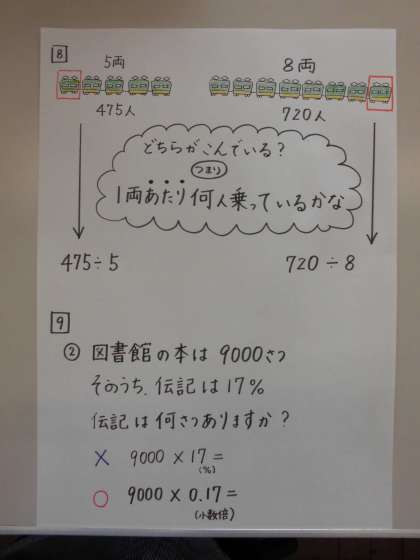 8
5両 8両
475人 720人
どちらがこんでいる?
つまり
1両あたり何人乗っているかな
475÷5 720÷8
9
② 図書館の本は 9000さつ
そのうち、伝記は17%
伝記は何さつありますか?
× 9000×17=
(%)
○ 9000×0.17=
(小数倍)